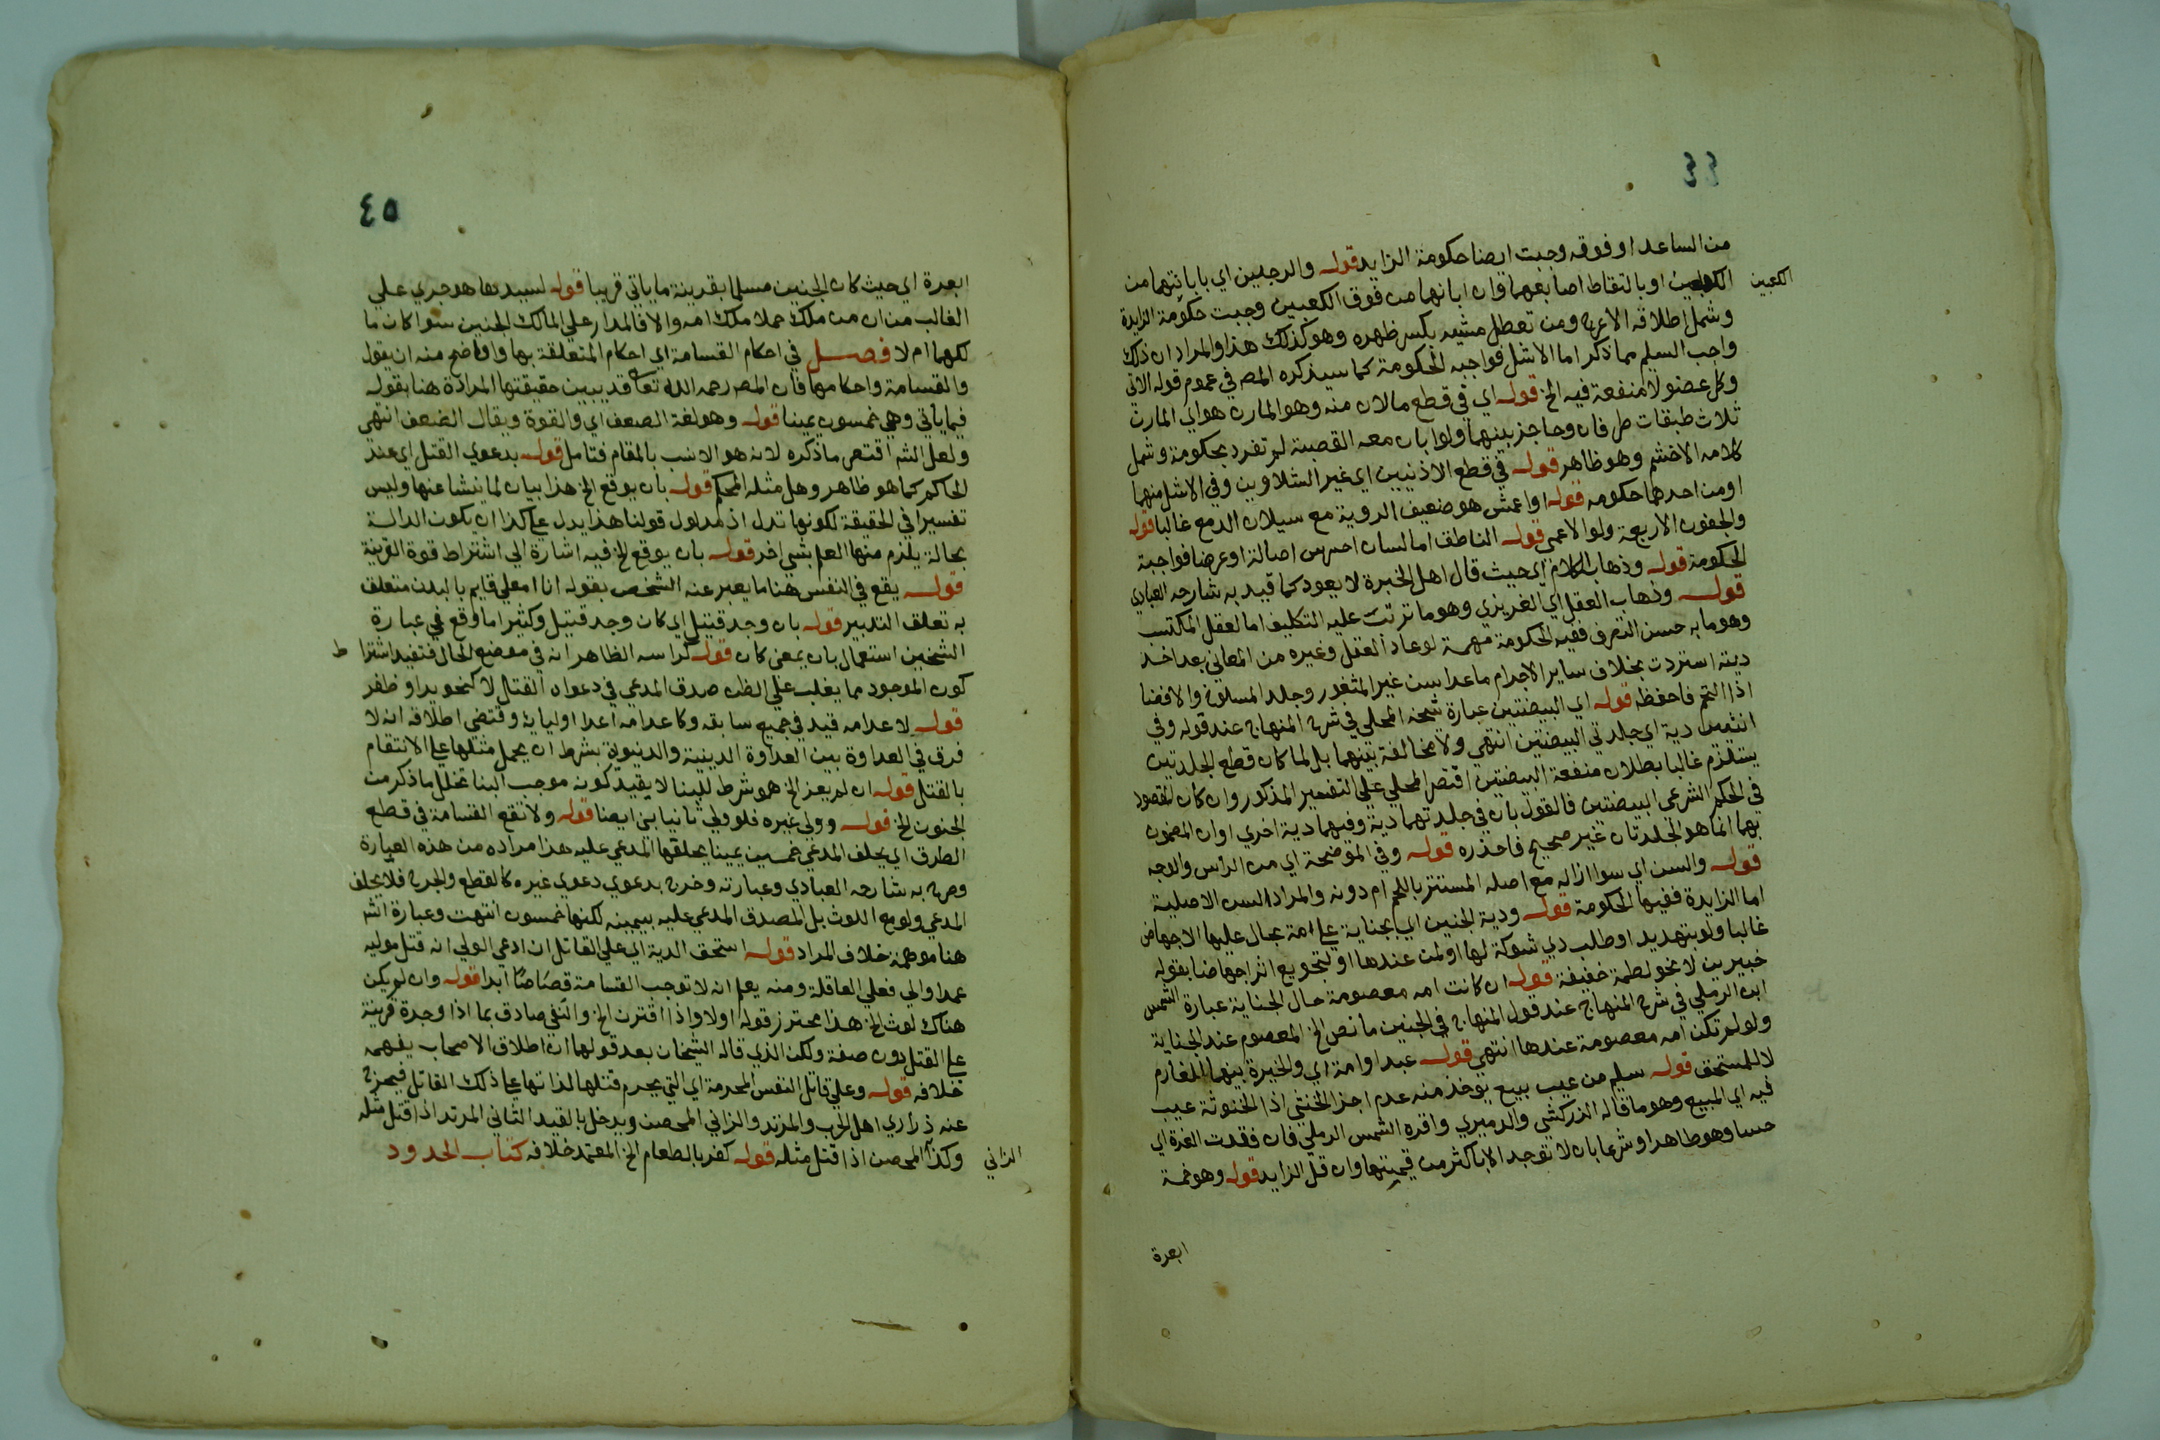 ٤٤
من الساعد او فوقه وجبت ايضا حكومة الزايد قوله والرجلين اي بابانتهما من
الكعبين
الكعبين او بالتقاط اصابعهما وان ابانهما من فوق الكعبين وجبت حكومة الزايدة
وشمل اطلاقه الاعرج ومن تعطل مشيه بكسر ظهره وهو كذلك هذا والمراد ان ذلك
واجب السليم مما ذكر اما الاشل فواجبه الحكومة كما سيذكره المصر في عموم قوله الاتي
وكل عضو لا منفعة فيه الخ قوله اي في قطع مالان منه وهو المارن هو اي المارن
ثلاث طبقات طرفان وحاجز بينهما ولو ابان معه القصبة لم تفرد بحكومة وشمل
كلامه الاخشم وهو ظاهر قوله في قطع الاذنين اي غير الشلاوين وفي الاشل منهما
او من احدهما حكومه قوله او اعمش هو ضعيف الروية مع سيلان الدمع غالبا قوله
والجفون الاربعة ولو لاعمي قوله الناطق اما لسان اخرس اصالة او عرضا فواجبة
الحكومة قوله وذهاب الكلام اي حيث قال اهل الخبرة لا يعود كما قيد به شارحه العبادي
قوله وذهاب العقل اي الغريزي وهو ما ترتب عليه التكليف اما لعقل المكتسب
وهو ما به حسن التصرف ففيه الحكومة مهمة لو عاد العقل وغيره من المعاني بعد اخذ
ديته استردت بخلاف ساير الاجرام ما عدا سن غير المثغور وجلد المسلوخ والافضا
اذا التحم فاحفظ قوله اي البيضتين عبارة شيخه المحلي في شرح المنهاج عند قوله وفي
انثيين دية اي جلدتي البيضتين انتهي ولا مخالفة بينهما بل لما كان قطع الجلدتين
يستلزم غالبا بطلان منفعة البيضتين اقتصر المحلي علي التفسير المذكور وان كان المقصود
في الحكم الشرعي البيضتين فالقول بان في جلدتهما دية وفيهما دية اخري او ان المضمون
بهما انما هو الجلدتان غير صحيح فاحذره قوله وفي الموضحة اي من الراس والوجه
قوله والسن اي سوا ازاله مع اصله المستتر باللحم ام دونه والمراد السن الاصلية
اما الزايدة ففيها الحكومة قوله ودية الجنين اي بجناية علي امة بحال عليها الاجهاض
غالبا ولو بتهديد او طلب ذي شوكة لها او لمن عندها او لتجويع اثر اجهاضا بقوله
خبيرين لا نحو لطمة خفيفة قوله ان كانت امه معصومة حال الجناية عبارة الشمس
ابن الرملي في شرح المنهاج عند قول المنهاج في الجنين ما نص الخ المعصوم عند الجناية
ولو لم تكن امه معصومة عندها انتهي قوله عبد او امة اي والخيرة بينهما للغارم
لا للمستحق قوله سليم من عيب بيع يوخذ منه عدم اجزا الخنثي اذا الخنوثة عيب
فيه اي المبيع وهو ما قاله الزركشي والدميري واقره الشمس الرملي فان فقدت الغرة اي
حسا وهو ظاهر او شرعا بان لا توجد الا باكثر من قيمتها وان قل الزايد قوله وهو خمسة
ابعرة
٤٥
ابعرة اي حيث كان الجنين مسلما بقرينة ما ياتي قريبا قوله لسيدها هو جري علي
الغالب من ان من ملك حملا ملك امه والا فالمدار علي المالك الجنين سوا كان ما
لكهما ام لا فصل في احكام القسامة اي احكام المتعلقة بها واوضح منه ان يقول
والقسامة واحكامها فان المصر رحمه الله تعا قد يبين حقيقتها المرادة هنا بقوله
فيما ياتي وهي خمسون يمينا قوله وهو لغة الضعف اي والقوة ويقال الضعف انتهي
ولعل الشم اقتصر ما ذكره لانه هو الانسب بالمقام فتامل قوله بدعوي القتل اي عند
الحاكم كما هو ظاهر وهل مثله المحكم قوله بان يوقع الخ هذا بيان لما ينشا عنها وليس
تفسيرا في الحقيقة لكونها تدل اذ مدلول قولنا هذا يدل علي كذا ان يكون الدالة
بحالة يلزم منها العلم بشي اخر قوله بان يوقع الخ فيه اشارة الي اشتراط قوة القرينة
قوله يقع في النفس هنا ما يعبر عنه الشخص بقوله انا اي معلي قايم بالبدن متعلق
به تعلق التدبير قوله بان وجد قتيل اي كان وجد قتيل وكثيرا ما وقع في عبارة
الشيخين استعمال بان بمعني كان قوله كراسه الظاهر انه في موضع الحال فتفيد اشترا ط
كون الموجود مما يغلب علي الظن صدق المدعي في دعواه القتل لا كنحو يد او ظفر
قوله لاعدامه قيد في جميع سابقه وكاعدامه اعدا اوليايه وقتضي اطلاقه انه لا
فرق في العداوة بين العداوة الدينية والدنيوية بشرط ان يحمل مثلها علي الانتقام
بالقتل قوله ان لم يعز الخ هو شرط للبنا لا بقيد كونه موجب البنا تخلل ما ذكر من
الجنون الخ قوله وولي غيره فلو ولي ثانيا بني ايضا قوله ولا تقع القسامة في قطع
الطرف اي يحلف المدعي خمسين يمينا يحلفها المدعي عليه هذا مراده من هذه العبارة
وصرح به شارحه العبادي وعبارته وخرج بدعوي دعوي غيره كالقطع والجرح فلا يحلف
المدعي ولو مع اللوث بل المصدق المدعي عليه بيمينه لكنها خمسون انتهت وعبارة الشم
هنا موهمة خلاف المراد قوله استحق الدية اي علي القاتل ان ادعي الولي انه قتل موليه
عمدا والا فعلي العاقلة ومنه يعلم ان لا توجب القسامة قصاصا ابدا قوله وان لم يكن
هناك لوث الخ هذا محترز قوله اولا واذا اقترن الخ والنفي صادق بما اذا وجدة قرينة
علي القتل بدون صفة ولكن الذي قاله الشيخان بعد قولهما ان اطلاق الاصحاب يفهمه
خلافه قوله وعلي قاتل النفس المحرمة اي التي يحرم قتلها لذاتها علي ذلك القاتل فيخرج
عنه ذراري اهل الحرب والمرتد والزاني المحصن ويدخل بالقيد الثاني المرتد اذا قتل مثله
الزاني
وكذا المحصن اذا قتل مثله قوله كفر بالطعام الخ المعتمد خلافه كتاب الحدود